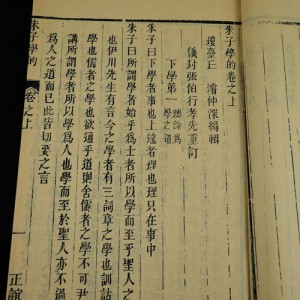 朱子學的卷之上
瓊臺丘 濬仲深編輯
儀封張伯行孝先重訂
下學第一 聽論為學之道
朱子曰下學者事也上達者理也理只在事中
朱子曰所謂學者始乎為士者所以學而至乎聖人之
學也伊川先生有言今之學者有三詞章之學也訓詁
學也儒者之學也欲通乎道則舍儒者之學不可尹
講所謂學者所以學為人也學而至於聖人亦不過
為人之道而已此皆切要之言
朱子學的 卷之上
正誼